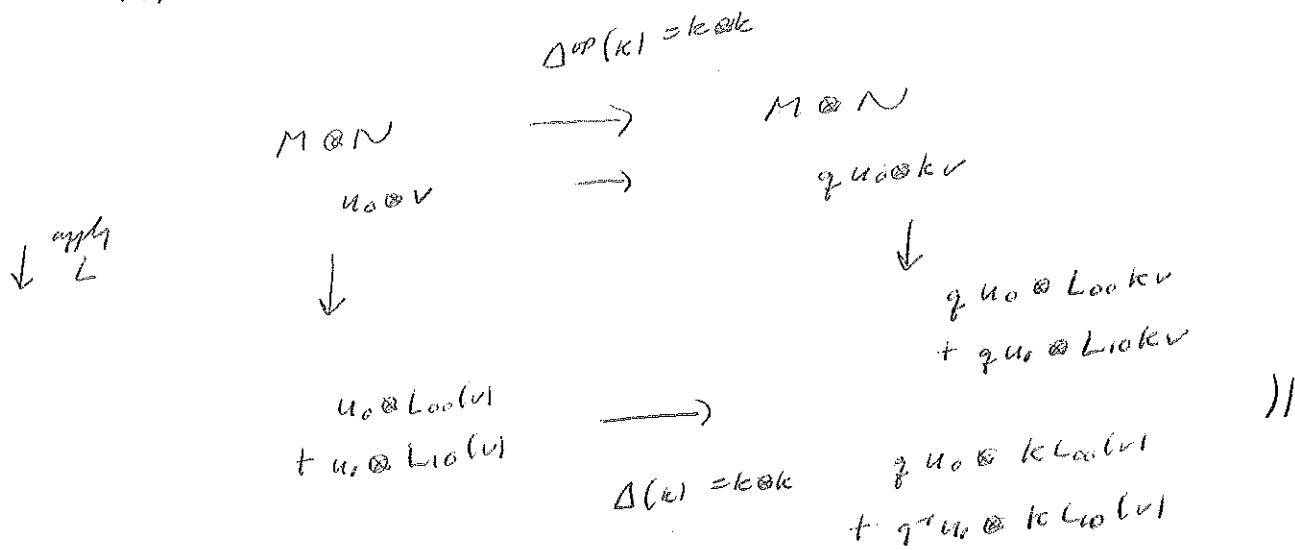 Δ^{op}(k) = k⊗k
M⊗N → M⊗N
u₀⊗v → q u₀⊗kv
↓ apply L ↓ ↓
q u₀ ⊗ L₀₀ kv
+ q u₁ ⊗ L₁₀ kv
u₀ ⊗ L₀₀(v) → ||
+ u₁ ⊗ L₁₀(v)
Δ(k) = k⊗k q u₀ ⊗ k L₀₀(v)
+ q⁻¹ u₁ ⊗ k L₁₀(v)